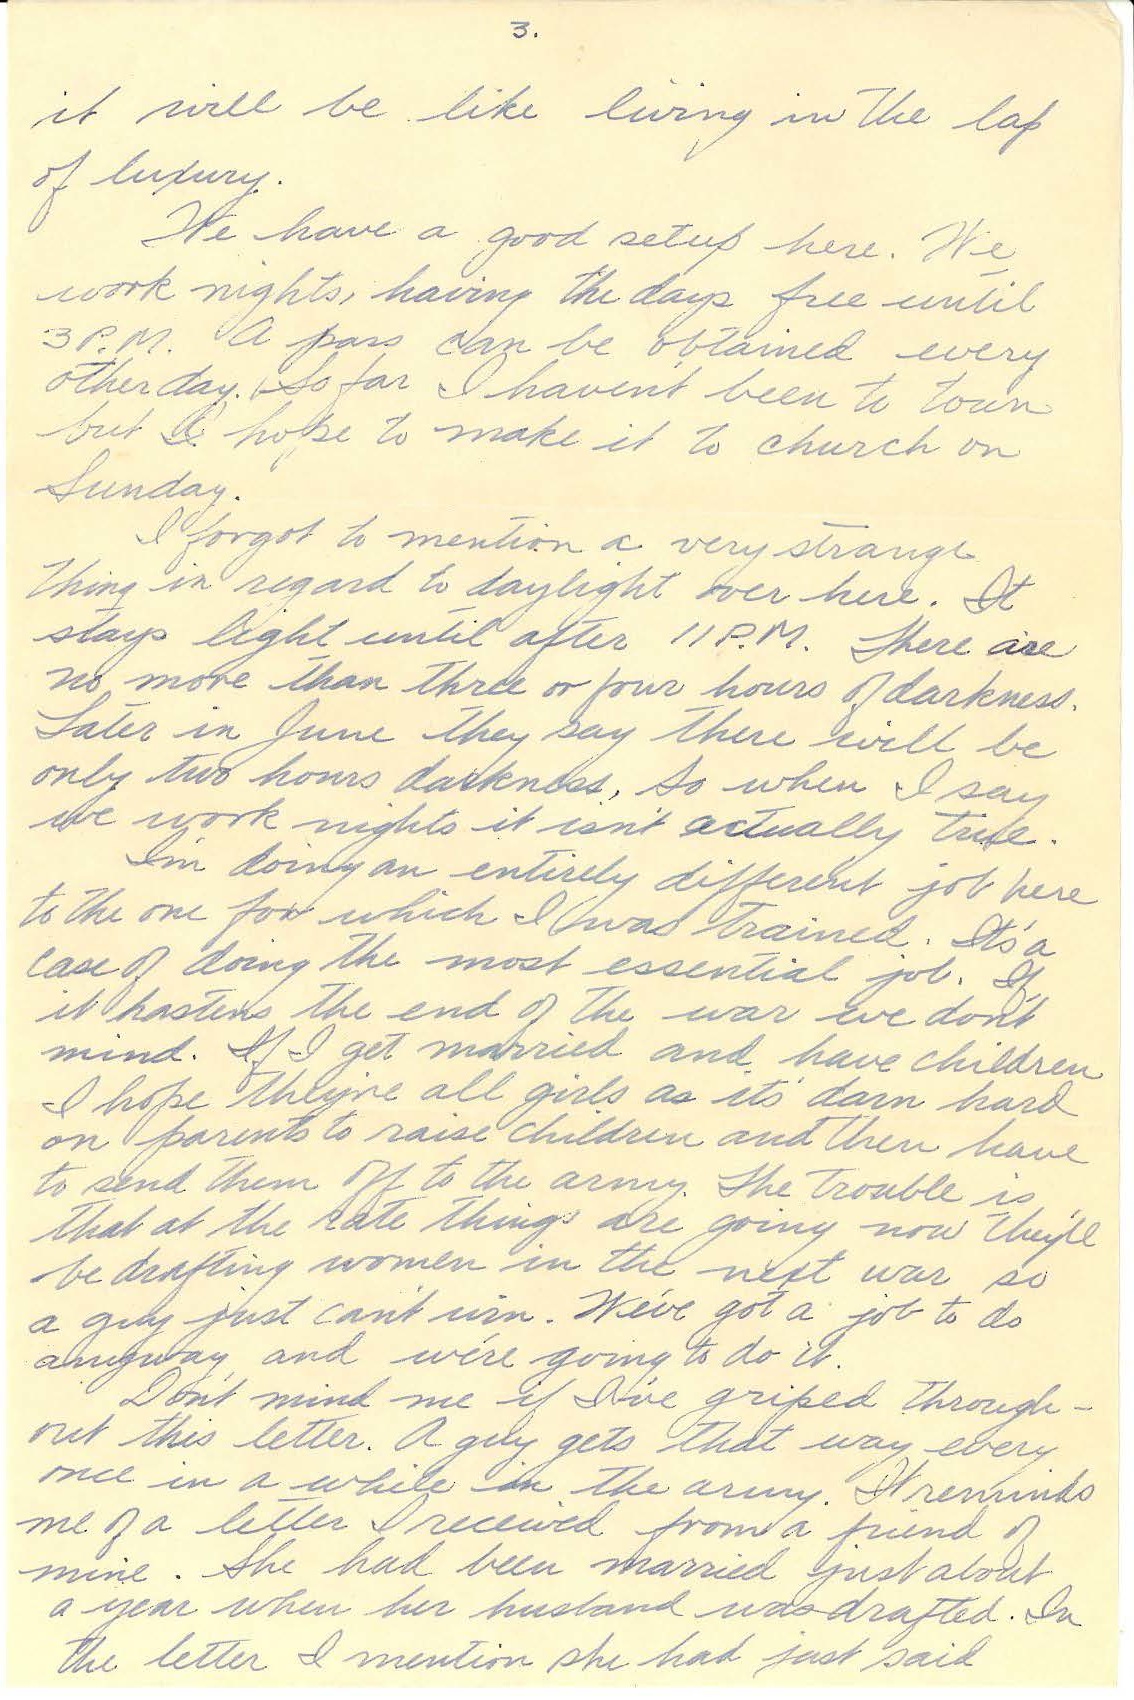 3.
it will be like living in the lap
of luxury.
We have a good setup here. We
work nights, having the days free until
3 P.M. A pass can be obtained every
other day. So far I haven't been to town
but I hope to make it to church on
Sunday.
I forgot to mention a very strange
thing in regard to daylight over here. It
stays light until after 11 P.M. There are
no more than three or four hours of darkness.
Later in June they say there will be
only two hours darkness, so when I say
we work nights it isn't actually true.
I'm doing an entirely different job here
to the one for which I was trained. It's a
case of doing the most essential job. If
it hastens the end of the war we don't
mind. If I get married and have children
I hope they're all girls as it's darn hard
on parents to raise children and then have
to send them off to the army. The trouble is
that at the rate things are going now they'll
be drafting women in the next war so
a guy just can't win. We've got a job to do
anyway and we're going to do it.
Don't mind me if I've griped through-
out this letter. A guy gets that way every
once in a while in the army. It reminds
me of a letter I received from a friend of
mine. She had been married just about
a year when her husband was drafted. In
the letter I mention she had just said